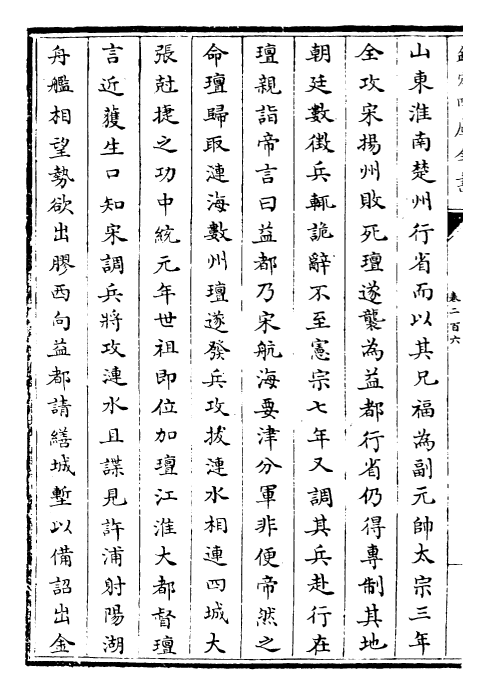 欽定四庫全書
卷二百六
山東淮南楚州行省而以其兄福為副元帥太宗三年
全攻宋揚州敗死璮遂襲為益都行省仍得専制其地
朝廷數徵兵輒詭辭不至憲宗七年又調其兵赴行在
璮親詣帝言曰益都乃宋航海要津分軍非便帝然之
命璮歸取漣海數州璮遂發兵攻拔漣水相連四城大
張尅捷之功中統元年世祖即位加璮江淮大都督璮
言近獲生口知宋調兵將攻漣水且諜見許浦射陽湖
舟艦相望勢欲出膠西向益都請繕城塹以備詔出金